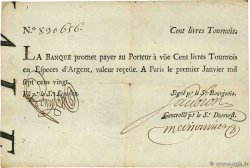 N.° 890616. Cent livres Tournois.
LA BANQUE promet payer au Porteur à vüe Cent livres Tournois
en Especes d'Argent, valeur reçeüe. A Paris le premier Janvier mil
sept cens vingt.
Signé p.r le S.r Bourgeois.
Controllé p.r le S.r Durevest.